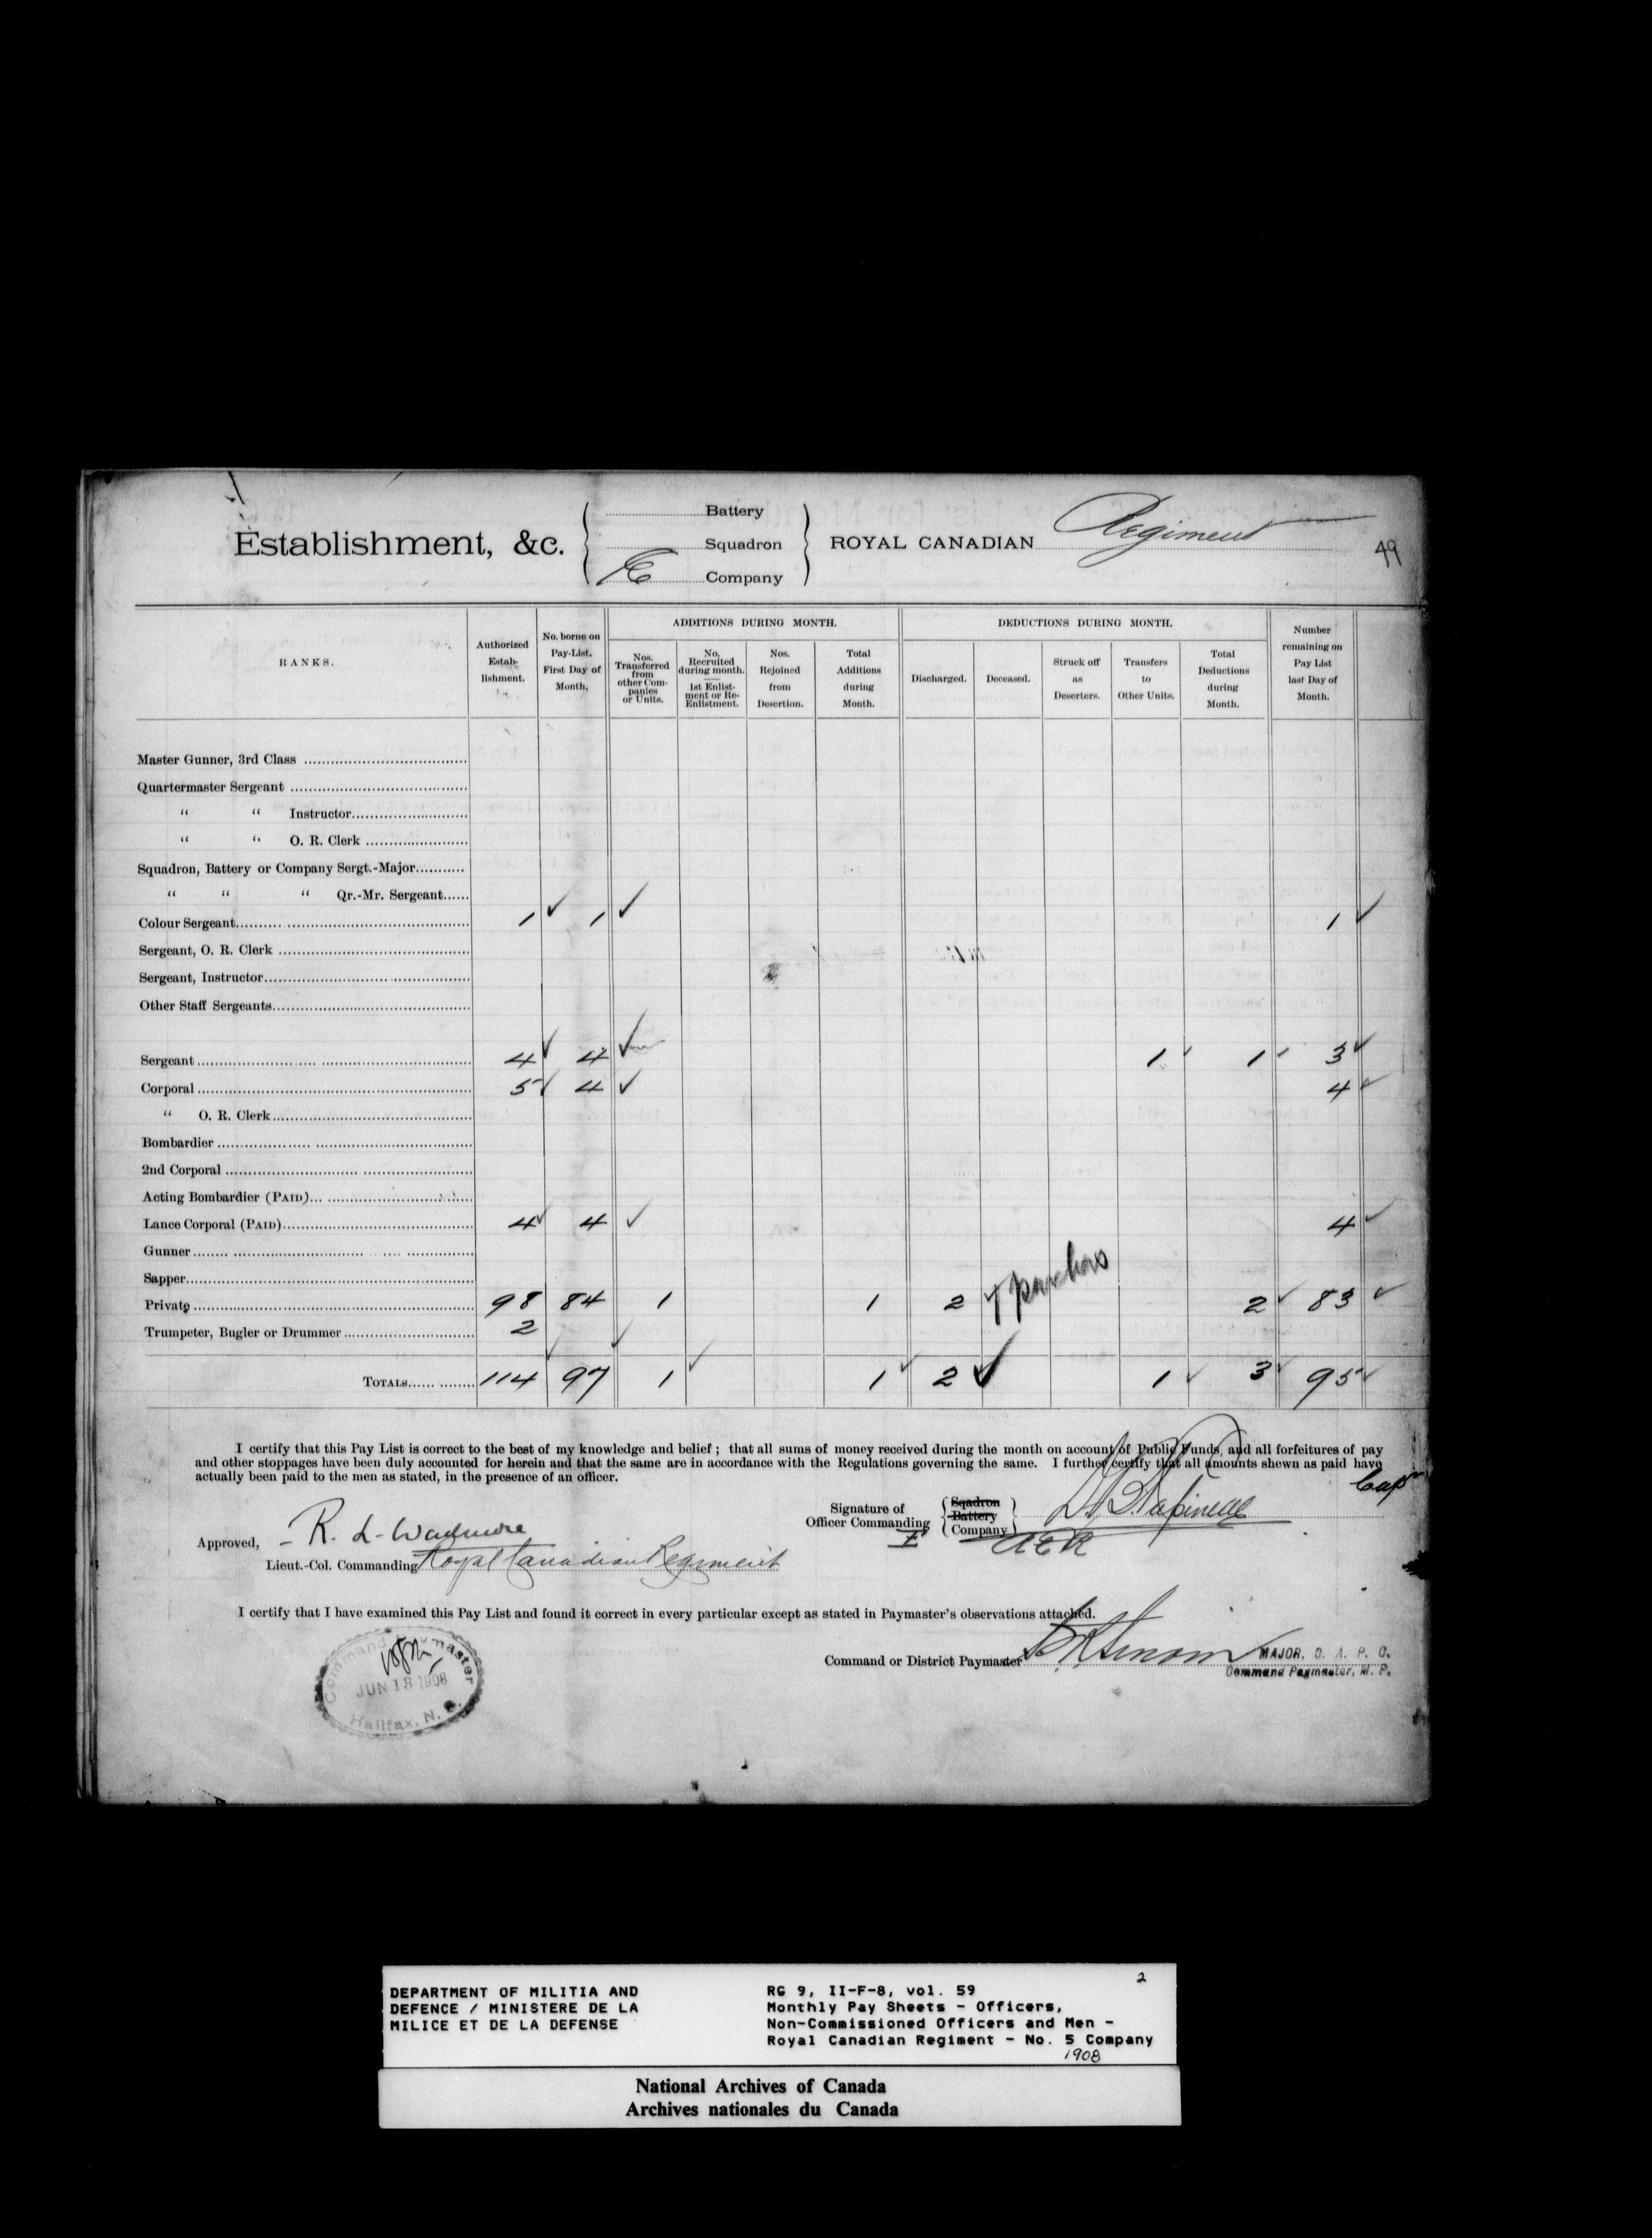 Battery
Establishment, &c. Squadron ROYAL CANADIAN Regiment 49
Company
RANKS. Authorized Establishment. No. borne on Pay-List. First Day of Month. ADDITIONS DURING MONTH. DEDUCTIONS DURING MONTH. Number remaining on Pay List last Day of Month.
Nos. Transferred from other Companies or Units. No. Recruited during month. 1st Enlistment or Re-Enlistment. Nos. Rejoined from Desertion. Total Additions during Month. Discharged. Deceased. Struck off as Deserters. Transfers to Other Units. Total Deductions during Month.
Master Gunner, 3rd Class
Quartermaster Sergeant
“ “ Instructor
“ “ O. R. Clerk
Squadron, Battery or Company Sergt.-Major
“ “ “ Qr.-Mr. Sergeant
Colour Sergeant 1 ✓ 1 ✓ 1 ✓
Sergeant, O. R. Clerk
Sergeant, Instructor
Other Staff Sergeants
Sergeant 4 ✓ 4 ✓ 1 ✓ 1 ✓ 3 ✓
Corporal 5 ✓ 4 ✓ 4 ✓
“ O. R. Clerk
Bombardier
2nd Corporal
Acting Bombardier (PAID)
Lance Corporal (PAID) 4 ✓ 4 ✓ 4 ✓
Gunner
Sapper
Private 98 84 1 1 2 2 ✓ 83 ✓
Trumpeter, Bugler or Drummer 2
TOTALS 114 97 1 ✓ 1 ✓ 2 ✓ 1 ✓ 3 ✓ 95 ✓
I certify that this Pay List is correct to the best of my knowledge and belief ; that all sums of money received during the month on account of Public Funds, and all forfeitures of pay
and other stoppages have been duly accounted for herein and that the same are in accordance with the Regulations governing the same. I further certify that all amounts shewn as paid have
actually been paid to the men as stated, in the presence of an officer.
Signature of Officer Commanding Sqadron Battery Company
Approved, R. L. Wadmore
Lieut.-Col. Commanding Royal Canadian Regiment
I certify that I have examined this Pay List and found it correct in every particular except as stated in Paymaster's observations attached.
Command or District Paymaster MAJOR, C. A. P. C.
Command Paymaster, M. P.
Command Paymaster
JUN 13 1908
Halifax, N. S.
2
DEPARTMENT OF MILITIA AND
DEFENCE / MINISTERE DE LA
MILICE ET DE LA DEFENSE
RG 9, II-F-8, vol. 59
Monthly Pay Sheets - Officers,
Non-Commissioned Officers and Men -
Royal Canadian Regiment - No. 5 Company
1908
National Archives of Canada
Archives nationales du Canada